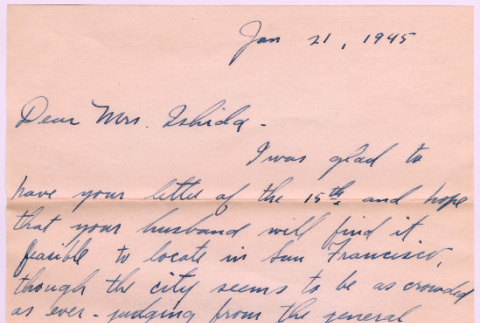 Jan 21, 1945
Dear Mrs. Ishida -
I was glad to
have your letter of the 15th, and hope
that your husband will find it
feasible to locate in San Francisco,
though the city seems to be as crowded
as ever - judging from the general